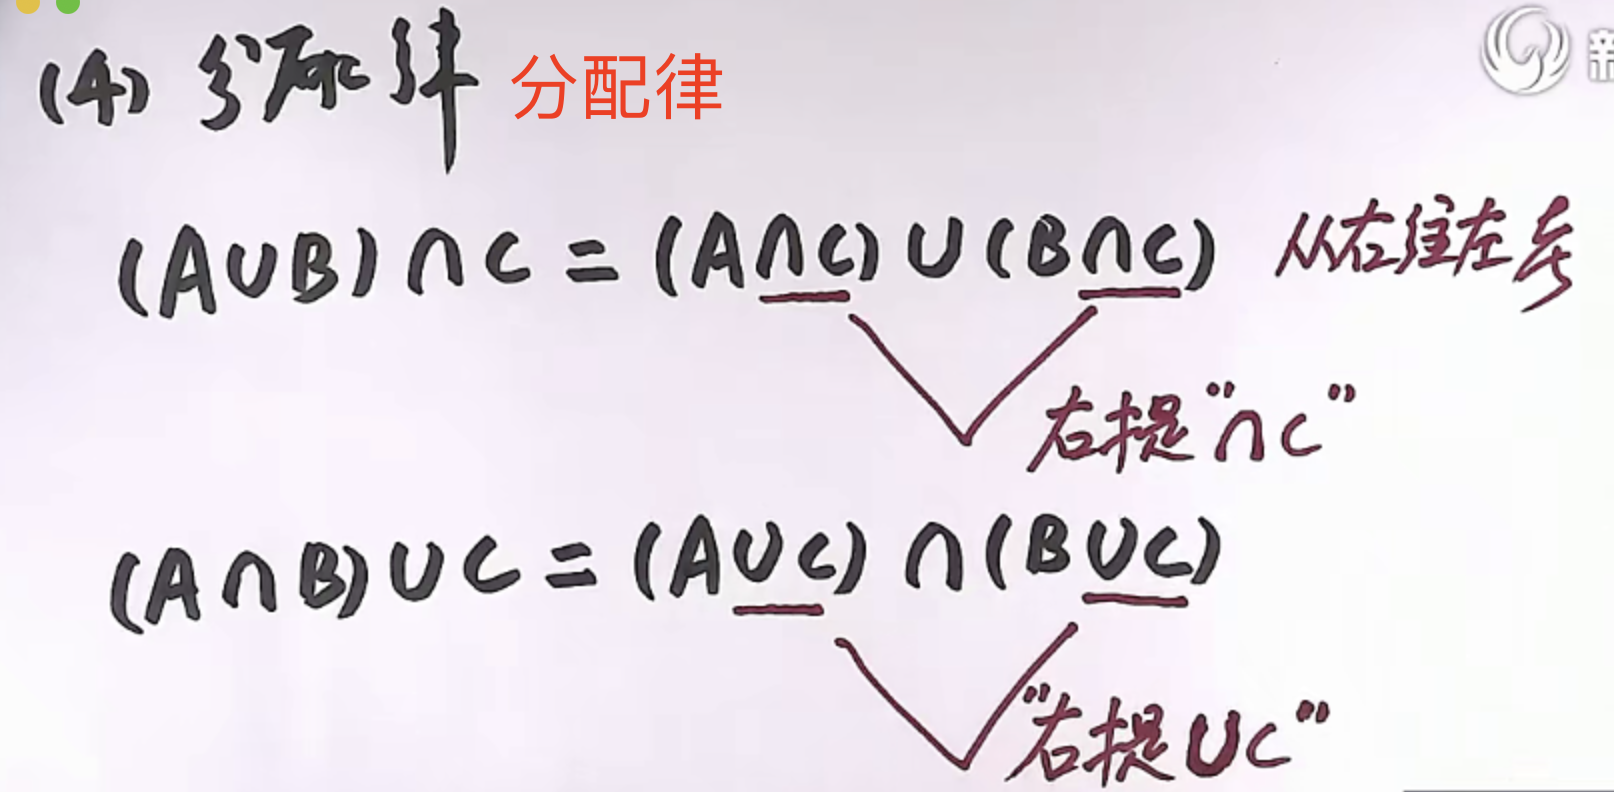 (4) 分配律 分配律
新
(A∪B)∩C=(A∩C)∪(B∩C) 从右往左看
右提“∩C”
(A∩B)∪C=(A∪C)∩(B∪C)
“右提∪C”